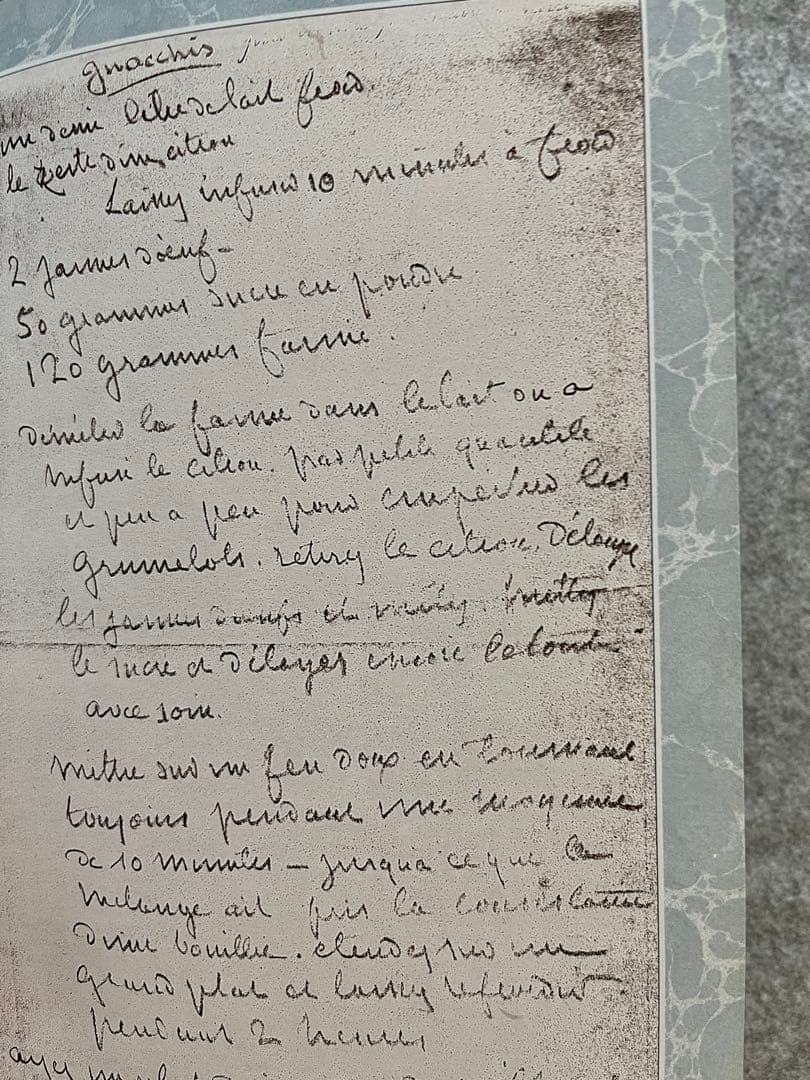 gnocchis
un demi litre de lait froid.
le zeste d'un citron
Laissez infuser 10 minutes à froid
2 jaunes d'œuf -
50 grammes sucre en poudre
120 grammes farine.
Démêler la farine dans le lait où a
infusé le citron. par petite quantité
et peu a peu pour empêcher les
grumelots. retirez le citron. Délayez
les jaunes d'œufs et
le sucre et Délayez encore le tout
avec soin.
mettre sur un feu doux en tournant
toujours pendant une moyenne
de 10 minutes - jusqu'a ce que le
mélange ait pris la consistance
d'une bouillie. étendez sur un
grand plat et laissez refroidir
pendant 2 heures
ayez un